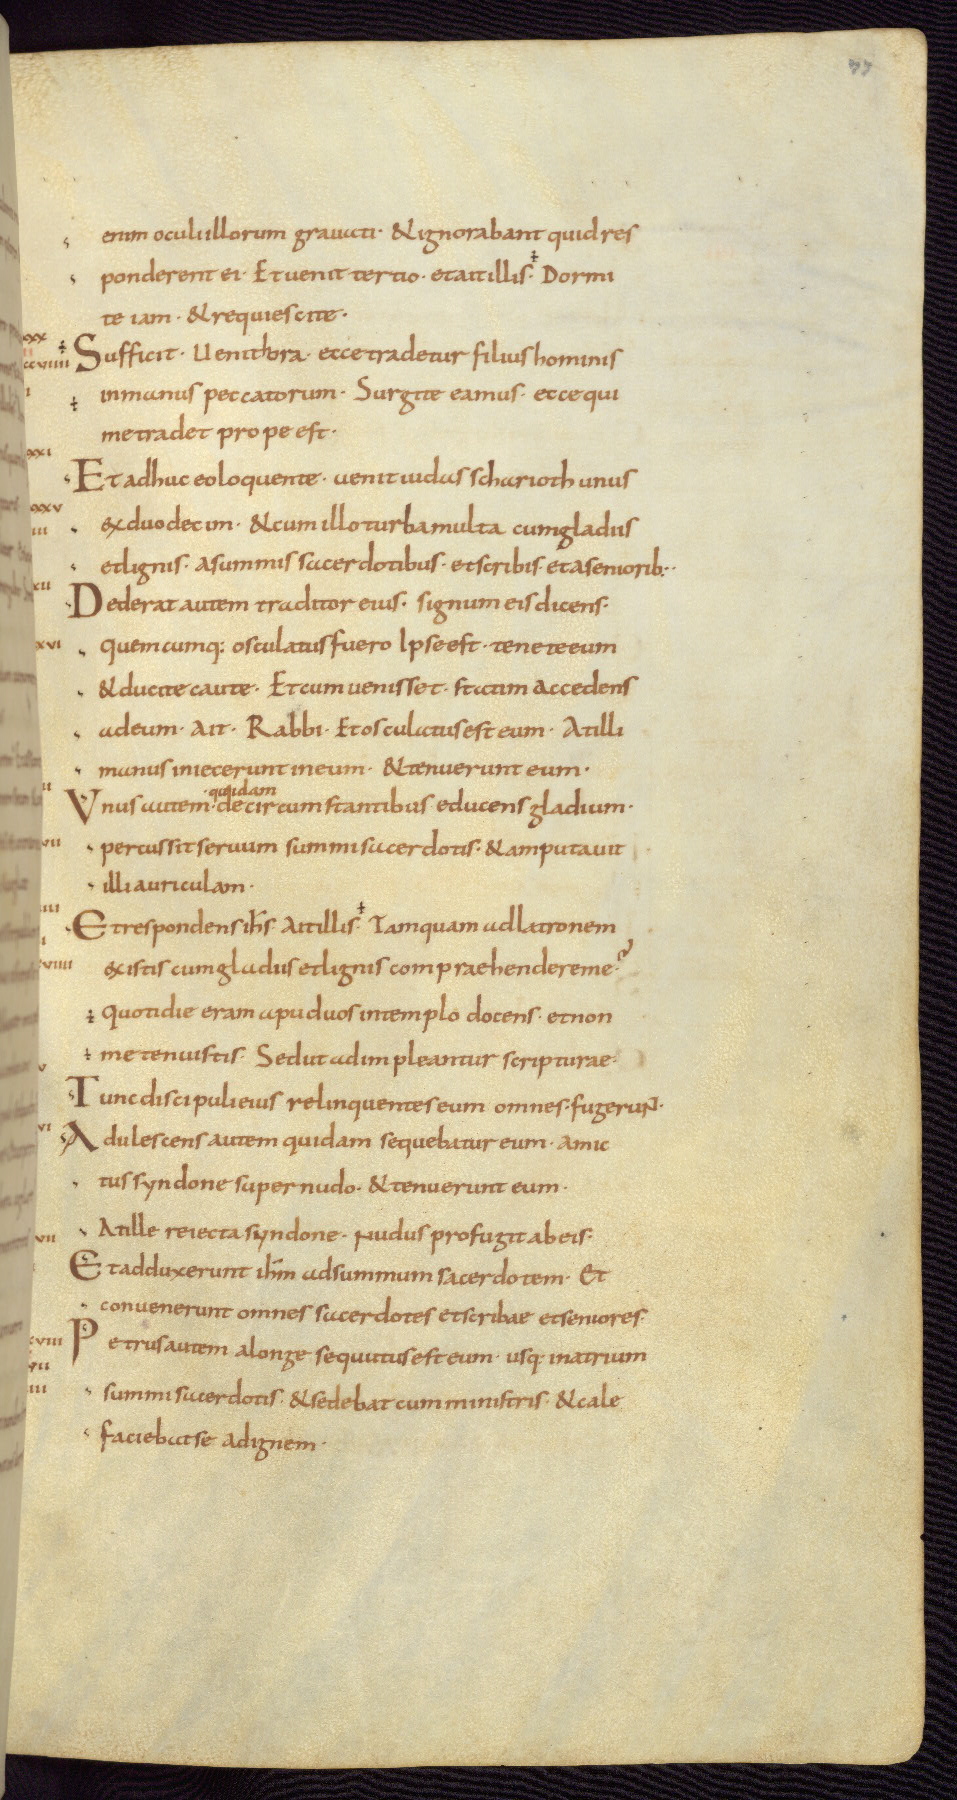 77
enim oculi illorum gravati · & ignorabant quid res
ponderent ei · Et venit tertio · et ait illis · Dormi
te iam · & requiescite ·
Sufficit · Uenit hora · ecce tradetur filius hominis
in manus peccatorum · Surgite eamus · ecce qui
me tradet prope est ·
Et adhuc eo loquente · uenit iudas scharioth unus
ex duodecim · & cum illo turba multa cum gladiis
et lignis · a summis sacerdotibus · et scribis · et a seniorib: ·
Dederat autem traditor eius · signum eis dicens ·
quemcumq: osculatus fuero Ipse est · tenete eum
& ducite caute · Et cum uenisset · statim accedens
ad eum · Ait · Rabbi · Et osculatus est eum · At illi
manus iniecerunt in eum · & tenuerunt eum ·
quidam
Vnus autem · de circumstantibus educens gladium ·
percussit seruum summi sacerdotis · & amputauit
illi auriculam ·
Et respondens ihs · Ait illis · Tamquam ad latronem
existis cum gladiis et lignis compraehendere me ·
quotidie eram apud uos in templo docens · et non
me tenuistis · Sed ut adimpleantur scripturae ·
Tunc discipuli eius relinquentes eum omnes · fugerunt ·
Adulescens autem quidam sequebatur eum · amic
tus syndone super nudo · & tenuerunt eum ·
At ille reiecta syndone · nudus profugit ab eis ·
Et adduxerunt ihm ad summum sacerdotem · Et
conuenerunt omnes sacerdotes et scribae et seniores ·
Petrus autem a longe sequutus est eum · usq: in atrium
summi sacerdotis · & sedebat cum ministris · & cale
faciebat se ad ignem ·